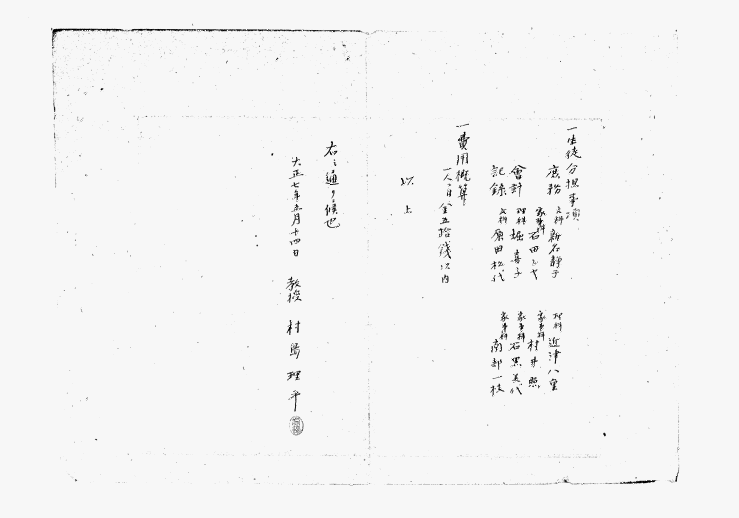 一生徒分担事項
庶務 文科 新名静子 理科 近津八重
家事科 石田シヤ 家事科 村井照
會計 理科 堀喜子 家事科 石黒美代
記録 文科 原田松代 家事科 南部一枝
一費用概算
一人ニ付金五拾銭以内
以上
右之通リ候也
大正七年 月十四日 教授 村島理平